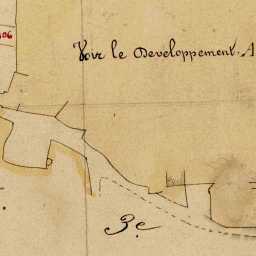 06
Voir le Developpement. A
3e